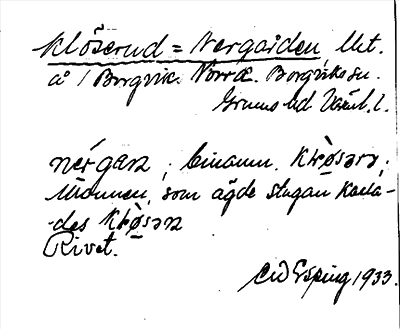 Klöserud = Nergården, lht.
å / Borgvik. Norra. Borgviks sn.
Grums hd Värml. l.
nérgan ; binamn. Kłø̀sərə;
Männen, som ägde stugan kalla-
des Kłø̀sərn
Rivet.
C W Esping 1933.